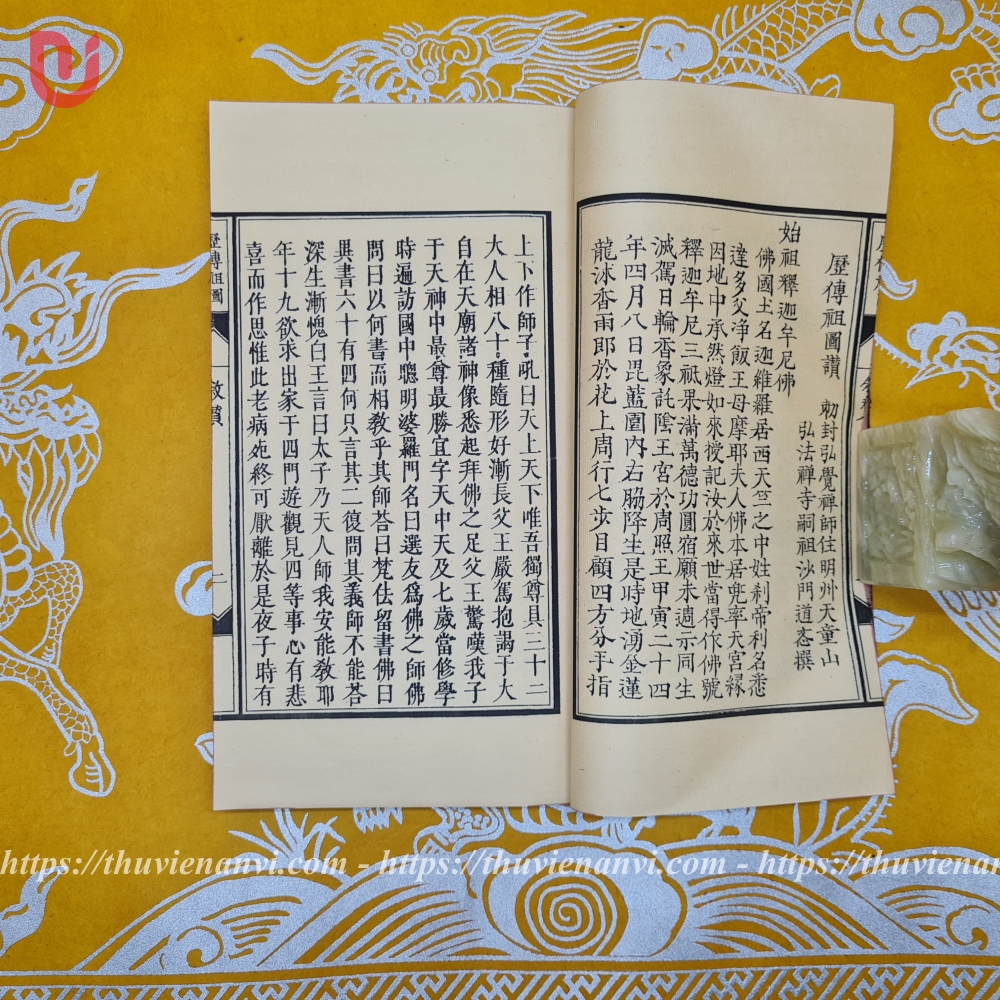 歷傳祖圖讚
勅封弘覺禪師住明州天童山
弘法禪寺嗣祖沙門道忞撰
始祖釋迦牟尼佛
佛國土名迦維羅居西天竺之中姓刹帝利名悉
達多父淨飯王母摩耶夫人佛本居兜率天宮緣
因地中承然燈如來授記汝於來世當得作佛號
釋迦牟尼三祇果滿萬德功圓宿願未週示同生
滅駕日輪香象託陰王宮於周照王甲寅二十四
年四月八日毘藍園內右脇降生是時地湧金蓮
龍沐香雨即於花上周行七步目顧四方分手指
上下作師子吼曰天上天下唯吾獨尊具三十二
大人相八十種隨形好漸長父王嚴駕抱謁于大
自在天廟諸神像悉起拜佛之足父王驚嘆我子
于天神中最尊最勝宜字天中天及七歲當修學
時遍訪國中聰明婆羅門名曰選友爲佛之師佛
問曰以何書而相敎乎其師荅曰梵佉留書佛曰
異書六十有四何只言其二復問其義師不能荅
深生漸愧白王言曰太子乃天人師我安能敎耶
年十九欲求出家于四門遊觀見四等事心有悲
喜而作思惟此老病死終可厭離於是夜子時有
歷傳祖圖
二
https://thuvienanvi.com - https://thuvienanvi.com - https://thuvienanvi